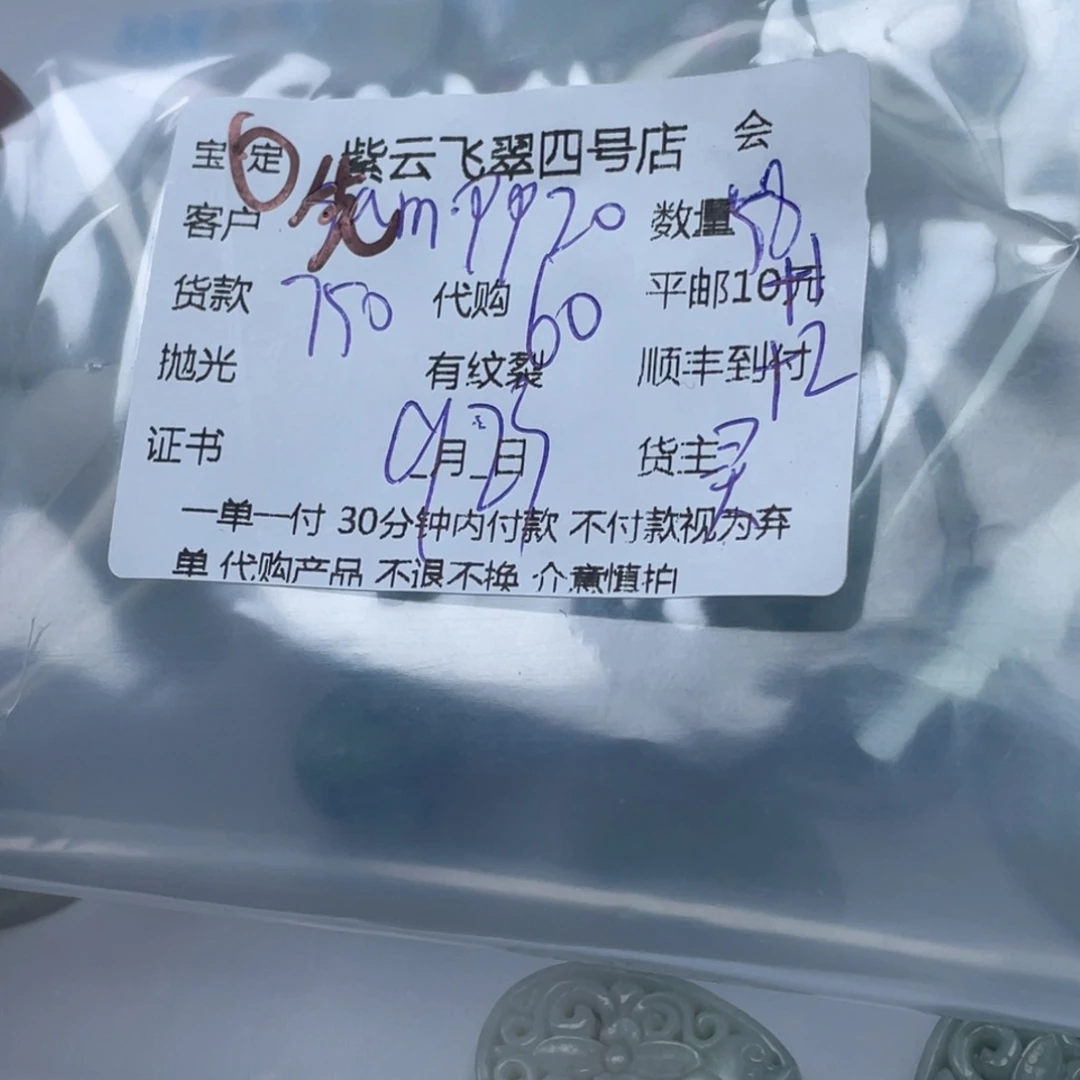 宝 定 紫云飞翠四号店 会
客户 9920 数量 58
货款 750 代购 60 平邮10元
抛光 有纹裂 顺丰到付
证书 9月25日 货主
一单一付 30分钟内付款 不付款视为弃
单 代购产品 不退不换 介意慎拍